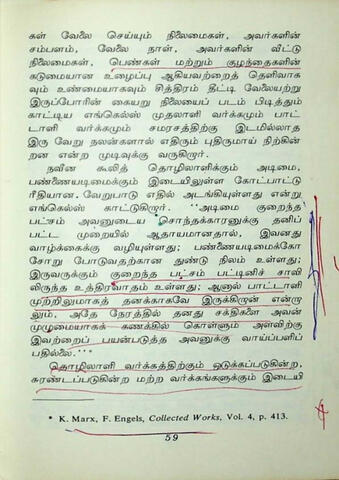 கள் வேலை செய்யும் நிலைமைகள், அவர்களின்
சம்பளம், வேலை நாள், அவர்களின் வீட்டு
நிலைமைகள், பெண்கள் மற்றும் குழந்தைகளின்
கடுமையான உழைப்பு ஆகியவற்றைத் தெளிவாக
வும் உண்மையாகவும் சித்திரம் தீட்டி வேலையற்று
இருப்போரின் கையறு நிலையைப் படம் பிடித்துக்
காட்டிய எங்கெல்ஸ் முதலாளி வர்க்கமும் பாட்
டாளி வர்க்கமும் சமரசத்திற்கு இடமில்லாத
இரு வேறு நலன்களால் எதிரும் புதிருமாய் நிற்கின்
றன என்ற முடிவுக்கு வருகிறார்.
நவீன கூலித் தொழிலாளிக்கும் அடிமை,
பண்ணையடிமைக்கும் இடையிலுள்ள கோட்பாட்டு
ரீதியான வேறுபாடு எதில் அடங்கியுள்ளது என்று
எங்கெல்ஸ் காட்டுகிறார். "அடிமை குறைந்த
பட்சம் அவனுடைய சொந்தக்காரனுக்கு தனிப்
பட்ட முறையில் ஆதாயமானதால், இவனது
வாழ்க்கைக்கு வழியுள்ளது; பண்ணையடிமைக்கோ
சோறு போடுவதற்கான துண்டு நிலம் உள்ளது;
இருவருக்கும் குறைந்த பட்சம் பட்டினிச் சாவி
லிருந்த உத்திரவாதம் உள்ளது; ஆனால் பாட்டாளி
முற்றிலுமாகத் தனக்காகவே இருக்கிறான் என்றா
லும், அதே நேரத்தில் தனது சக்திகளை அவன்
முழுமையாகக் கணக்கில் கொள்ளும் அளவிற்கு
இவற்றைப் பயன்படுத்த அவனுக்கு வாய்ப்பளிப்
பதில்லை."*
தொழிலாளி வர்க்கத்திற்கும் ஒடுக்கப்படுகின்ற,
சுரண்டப்படுகின்ற மற்ற வர்க்கங்களுக்கும் இடையி
* K. Marx, F. Engels, Collected Works, Vol. 4, p. 413.
59